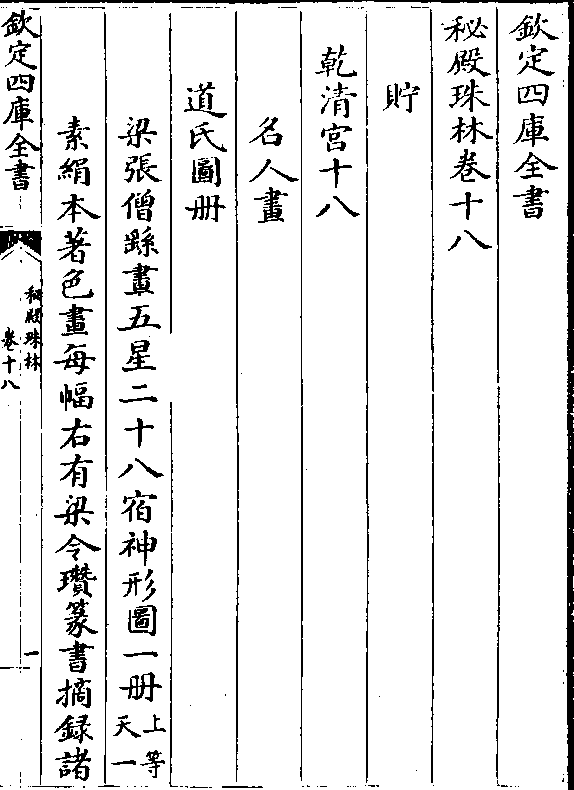 欽定四庫全書
秘殿珠林卷十八
貯
乾清宫十八
名人畫
道氏圖册
梁張僧繇畫五星二十八宿神形圖一册上等天一
素絹本著色畫每幅右有梁令瓚篆書摘録諸
欽定四庫全書
秘殿珠林
卷十八
一